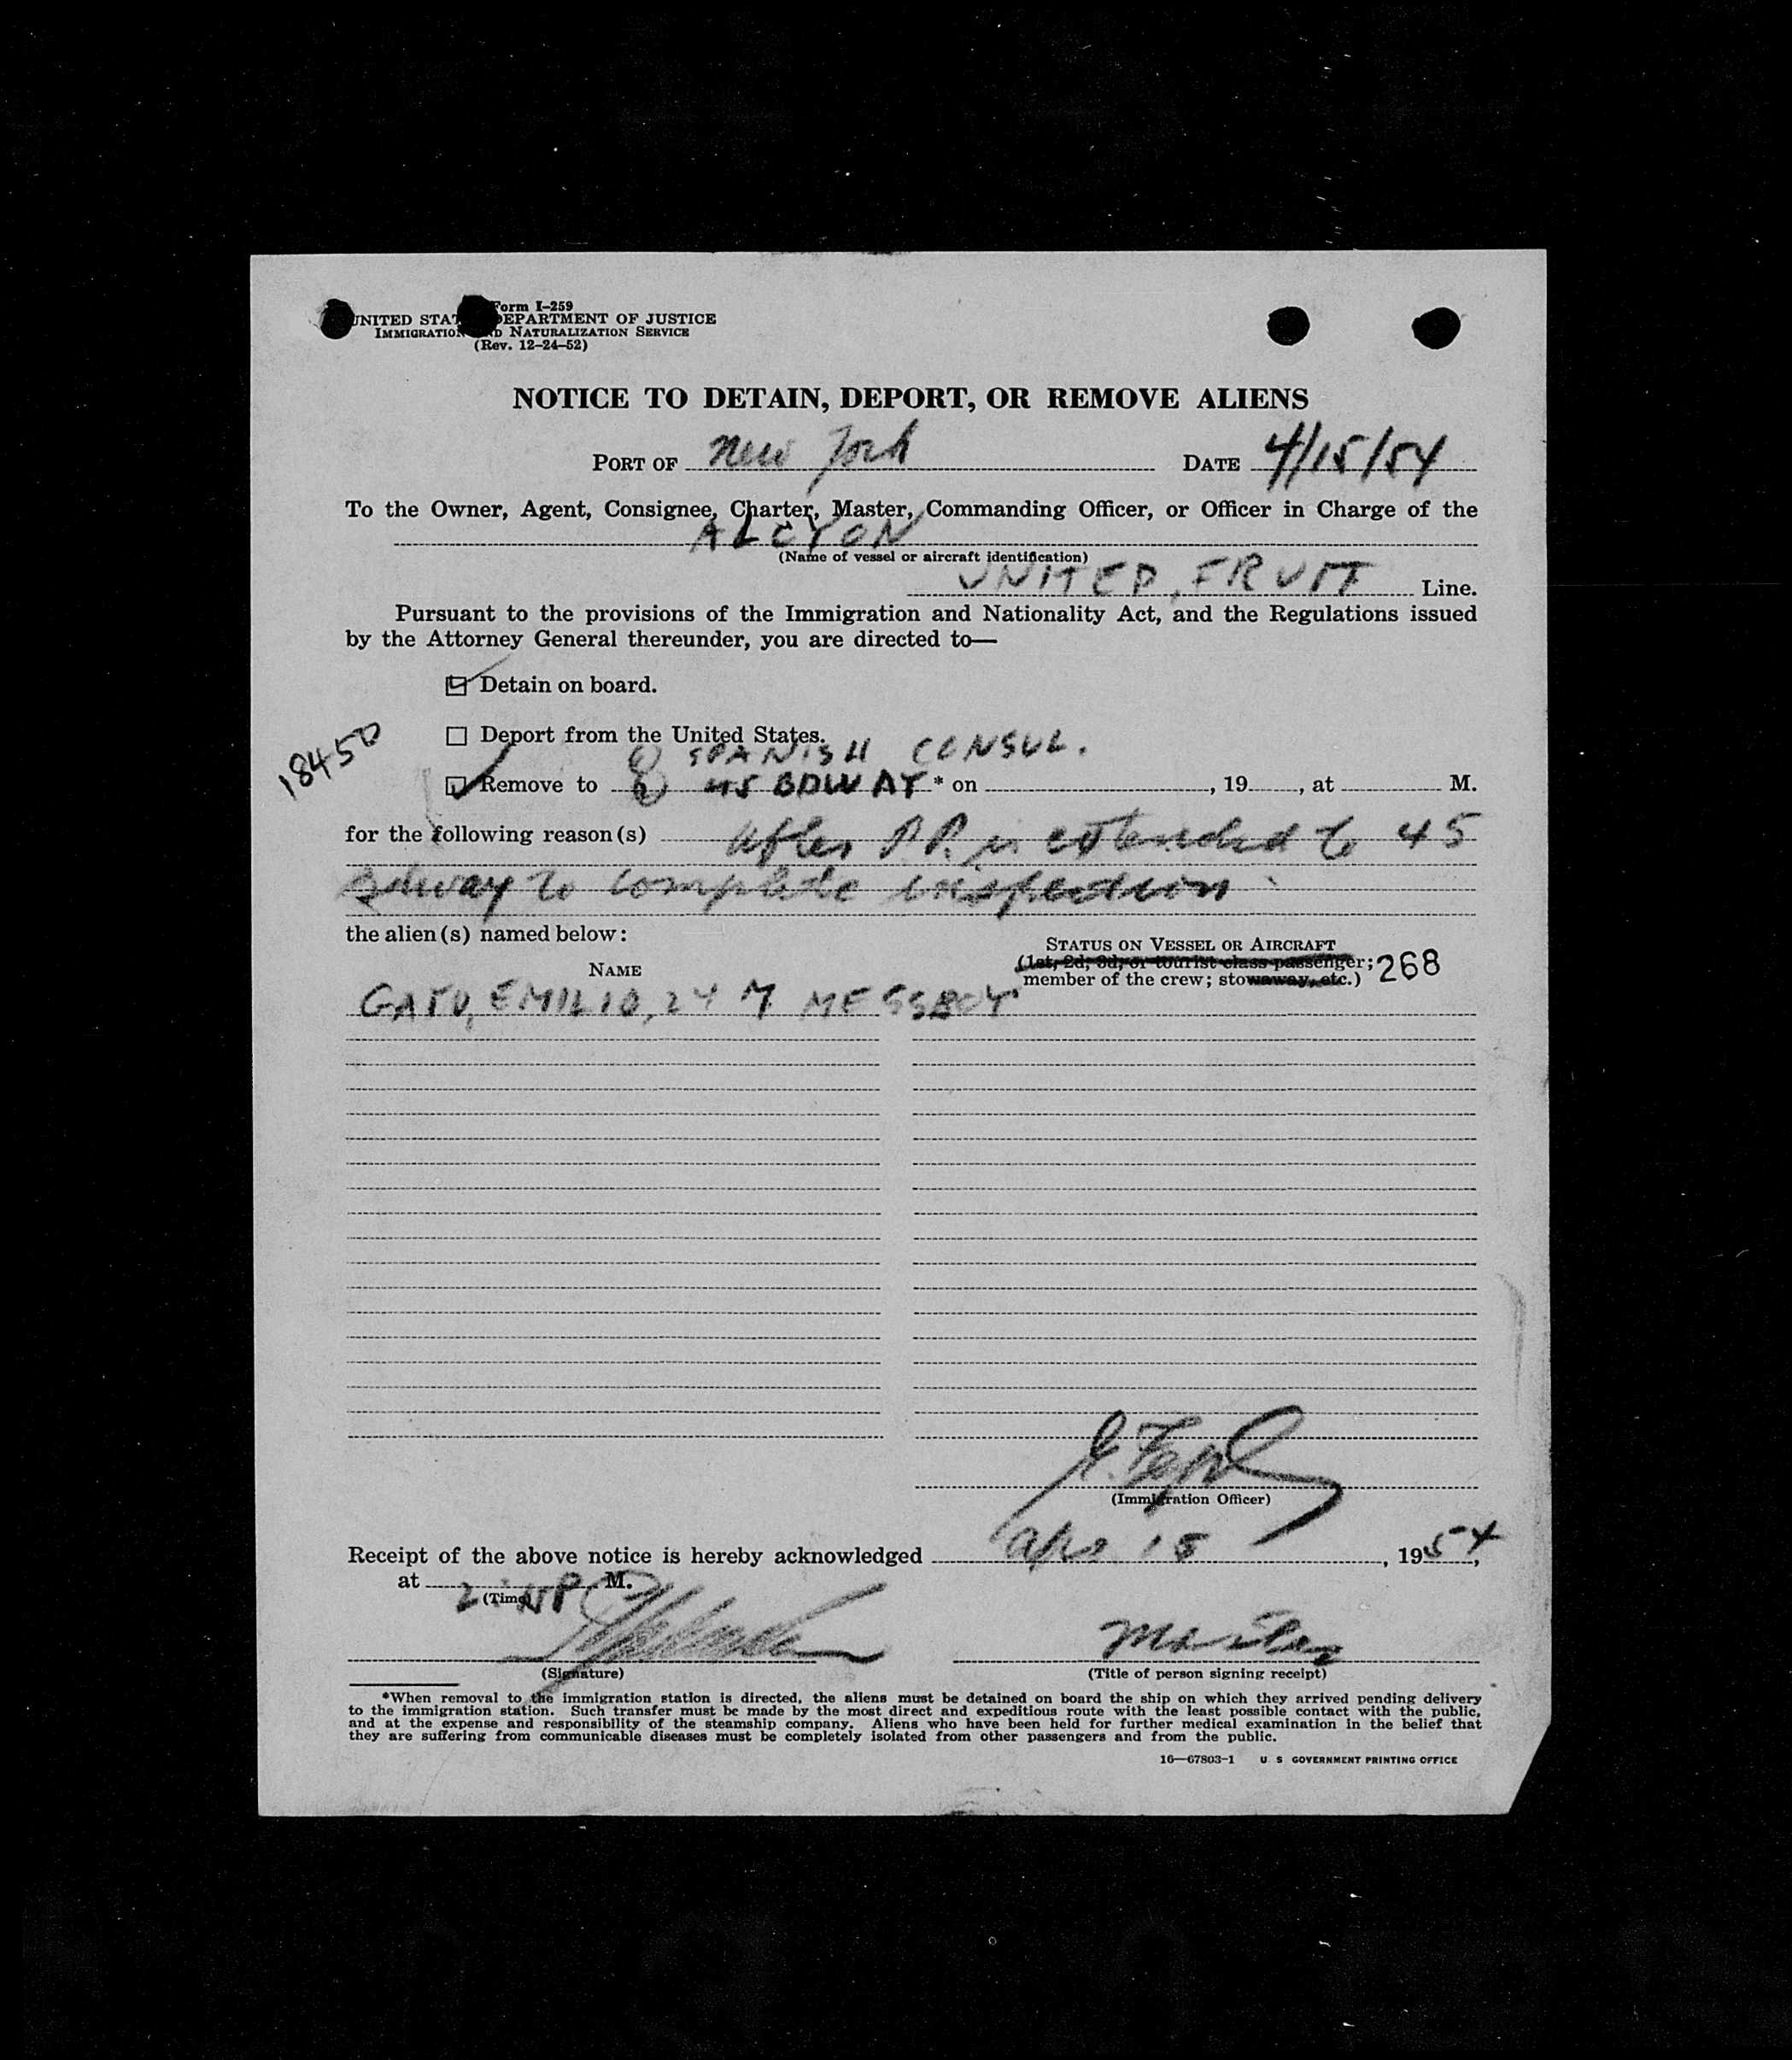 Form I-259
UNITED STATES DEPARTMENT OF JUSTICE
IMMIGRATION AND NATURALIZATION SERVICE
(Rev. 12-24-52)
NOTICE TO DETAIN, DEPORT, OR REMOVE ALIENS
PORT OF New York DATE 4/15/54
To the Owner, Agent, Consignee, Charter, Master, Commanding Officer, or Officer in Charge of the
ALCYON
(Name of vessel or aircraft identification)
UNITED FRUIT Line.
Pursuant to the provisions of the Immigration and Nationality Act, and the Regulations issued
by the Attorney General thereunder, you are directed to—
Detain on board.
Deport from the United States.
18450
SPANISH CONSUL.
Remove to 45 BDWAY * on , 19 , at M.
for the following reason(s) after P.P. is extended to 45
Bdway to complete inspection
the alien(s) named below:
STATUS ON VESSEL OR AIRCRAFT
(1st, 2d, 3d, or tourist class passenger; 268
NAME
member of the crew; stowaway, etc.)
EMILIO, 24 M MESSBOY
(Immigration Officer)
Receipt of the above notice is hereby acknowledged Apr 15, 1954,
at M.
(Time)
Master
(Signature) (Title of person signing receipt)
*When removal to the immigration station is directed, the aliens must be detained on board the ship on which they arrived pending delivery
to the immigration station. Such transfer must be made by the most direct and expeditious route with the least possible contact with the public,
and at the expense and responsibility of the steamship company. Aliens who have been held for further medical examination in the belief that
they are suffering from communicable diseases must be completely isolated from other passengers and from the public.
16—67803-1 U S GOVERNMENT PRINTING OFFICE